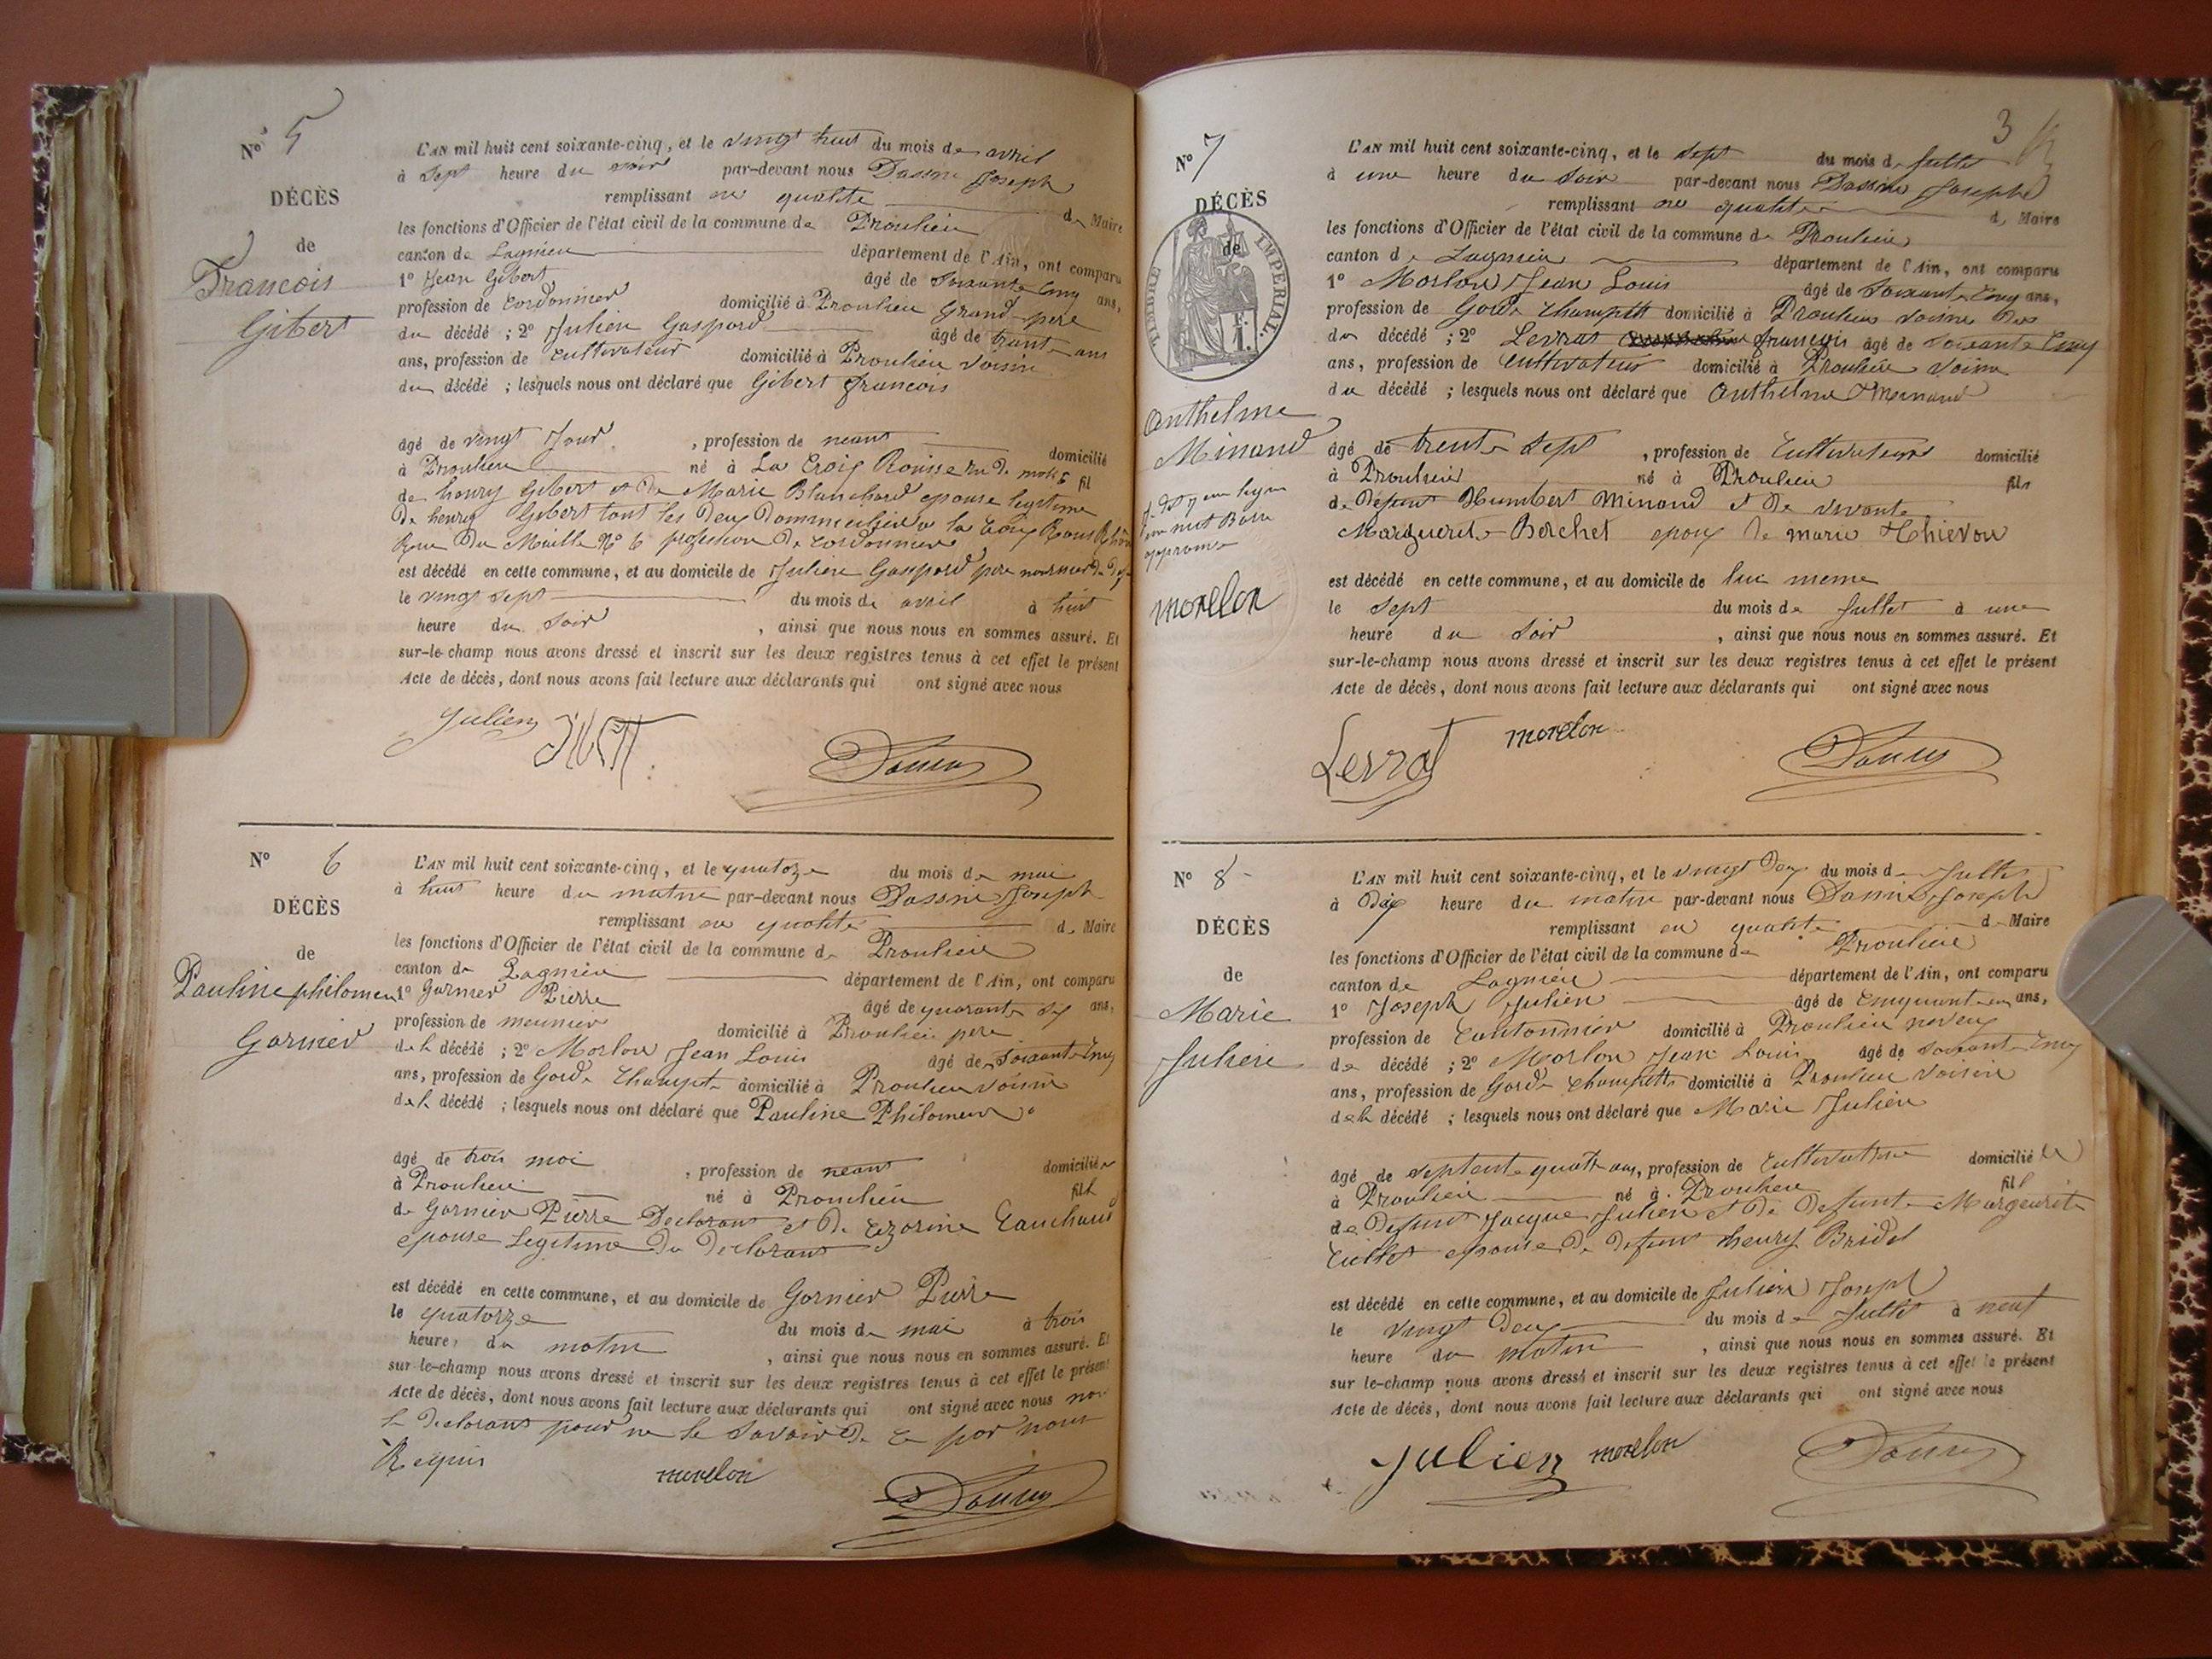 N° 5
DÉCÈS
de
Francois
Gibert
L'AN mil huit cent soixante-cinq, et le vingt huit du mois de avril
à sept heure du soir par-devant nous Dassin Joseph
remplissant en qualite de Maire
les fonctions d'Officier de l'état civil de la commune de Proulieu
canton de Lagnieu département de l'Ain, ont comparu
1° Jean Gibert âgé de soixante cinq ans,
profession de cordonnier domicilié à Proulieu Grand-pere
du décédé ; 2° Julien Gaspard âgé de trente
ans, profession de cultivateur domicilié à Proulieu voisin
du décédé ; lesquels nous ont déclaré que Gibert francois
âgé de vingt Jour , profession de neant domicilié
à Proulieu né à La Croix Rousse fil
de henry Gibert et de Marie Blanchard epouse legitime
De henry Gibert tout les deux Dommicilier a la Croix Rousse
Rue Du N° 6 profession De cordonnier
est décédé en cette commune, et au domicile de Julien Gaspard pere
le vingt sept du mois de avril à huit
heure du soir , ainsi que nous nous en sommes assuré. Et
sur-le-champ nous avons dressé et inscrit sur les deux registres tenus à cet effet le présent
Acte de décès, dont nous avons fait lecture aux déclarants qui ont signé avec nous
Julien
N° 6
DÉCÈS
de
Pauline philomen
Garnier
L'AN mil huit cent soixante-cinq, et le quatorze du mois de mai
à huit heure du matin par-devant nous Dassin Joseph
remplissant en qualite de Maire
les fonctions d'Officier de l'état civil de la commune de Proulieu
canton de Lagnieu département de l'Ain, ont comparu
1° Garnier Pierre âgé de quarante six ans,
profession de meunier domicilié à Proulieu pere
de la décédé ; 2° Morlon Jean Louis âgé de soixante cinq
ans, profession de Garde Champt domicilié à Proulieu voisin
de la décédé ; lesquels nous ont déclaré que Pauline Philomen
âgé de trois moi , profession de neant domicilié
à Proulieu né à Proulieu fill
de Garnier Pierre Declarant et De
epouse Legitime Du Declarant
est décédé en cette commune, et au domicile de Garnier Pierre
le quatorze du mois de mai à trois
heure, du matin , ainsi que nous nous en sommes assuré. Et
sur-le-champ nous avons dressé et inscrit sur les deux registres tenus à cet effet le présent
Acte de décès, dont nous avons fait lecture aux déclarants qui ont signé avec nous non
le declarant pour ne le savoir De ce par nous
Requis
morelon
3
N° 7
DÉCÈS
de
TIMBRE IMPERIAL
Anthelme
Minand
approuve
morelon
L'AN mil huit cent soixante-cinq, et le sept du mois de Jullet
à une heure du soir par-devant nous Dassin Joseph
remplissant en qualite de Maire
les fonctions d'Officier de l'état civil de la commune de Proulieu
canton de Lagnieu département de l'Ain, ont comparu
1° Morlon Jean Louis âgé de soixante cinq ans,
profession de Garde Champett domicilié à Proulieu voisin
du décédé ; 2° Levrat françois âgé de soixante cinq
ans, profession de cultivateur domicilié à Proulieu voisin
du décédé ; lesquels nous ont déclaré que Anthelme Minand
âgé de trente sept , profession de Cultivateur domicilié
à Proulieu né à Proulieu fils
de Defunt Humbert Minand et De vivante
Marguerite Berchet epoux De marie Thievon
est décédé en cette commune, et au domicile de lui meme
le sept du mois de Jullet à une
heure du soir , ainsi que nous nous en sommes assuré. Et
sur-le-champ nous avons dressé et inscrit sur les deux registres tenus à cet effet le présent
Acte de décès, dont nous avons fait lecture aux déclarants qui ont signé avec nous
Levrat morelon
N° 8
DÉCÈS
de
Marie
Julien
L'AN mil huit cent soixante-cinq, et le vingt Deux du mois de Jullet
à Dix heure du matin par-devant nous Dassin Joseph
remplissant en qualite de Maire
les fonctions d'Officier de l'état civil de la commune de Proulieu
canton de Lagnieu département de l'Ain, ont comparu
1° Joseph Julien âgé de cinquante un ans,
profession de Cantonnier domicilié à Proulieu neveu
de décédé ; 2° Morlon Jean Louis âgé de soixante cinq
ans, profession de Garde Champett domicilié à Proulieu voisin
de la décédé ; lesquels nous ont déclaré que Marie Julien
âgé de septente quatre ans, profession de Cultivatrice domicilié
à Proulieu né à Proulieu fil
de Defunt Jacque Julien et De Defunte Margeurite
epouse De Defunt henry Bridel
est décédé en cette commune, et au domicile de Julien Joseph
le vingt Deux du mois de Jullet à neuf
heure du matin , ainsi que nous nous en sommes assuré. Et
sur le-champ nous avons dressé et inscrit sur les deux registres tenus à cet effet le présent
Acte de décès, dont nous avons fait lecture aux déclarants qui ont signé avec nous
Julien morelon